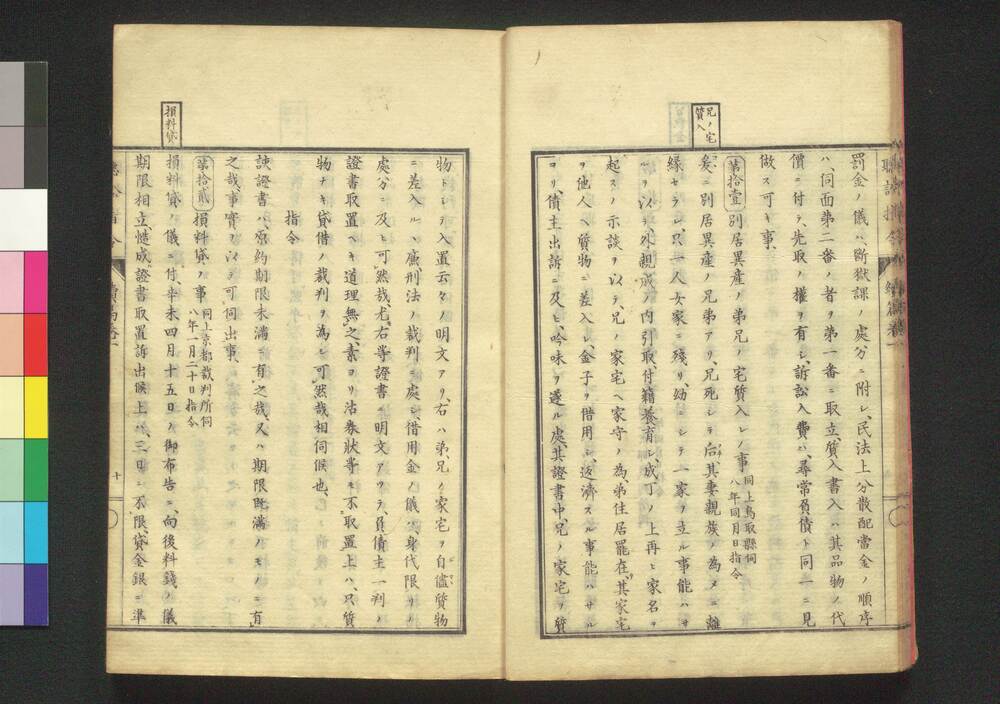 兄ノ宅
質入
罰金ノ儀ハ、斷獄課ノ處分ニ附シ、民法上分散配當金ノ順序
ハ、伺面第二番ノ者ヲ第一番ニ取立、質入書入ハ其品物ノ代
價ニ付テ、先取ノ權ヲ有シ、訴訟入費ハ、尋常負債ト同一ニ見
做ス可キ事、
第拾壹 別居異産ノ弟兄ノ宅質入レノ事 同上鳥取縣伺
八年同月日指令
爰ニ別居異産ノ兄弟アリ、兄死シテ后、其妻親族ノ為メニ離
縁セラレ、只一人女家ニ殘リ、幼ニシテ一家ヲ立ル事能ハサ
ルヲ以テ、外親戚ノ内引取、付籍養育シ、成丁ノ上再ヒ家名ヲ
起スノ示談ヲ以テ、兄ノ家宅ヘ家守ノ為、弟住居罷在、其家宅
ヲ他人ヘ質物ニ差入レ、金子ヲ借用シ、返濟スル事能ハサル
ヨリ、債主出訴ニ及ヒ、吟味ヲ遂ル處、其證書中、兄ノ家宅ヲ質
損料貸
物トシテ入置云々ノ明文アリ、右ハ弟、兄ノ家宅ヲ自儘質物
ニ差入ル、ハ、屬刑法ノ裁判ニ處シ、借用金ノ儀ハ、身代限リノ
處分ニ及ヒ可然哉、尤右等證書ノ明文アリテ、負債主一判ノ
證書取置ヘキ道理無之、素ヨリ沽券狀等モ不取置上ハ、只質
物ナキ貸借ノ裁判ヲ為シ可然哉、相伺候也、
指令
該證書ハ、原約期限未滿ニ有之哉、又ハ期限既滿ノモノニ有
之哉、事實ヲ以テ可伺出事、
第拾貳 損料貸ノ事 同上京都裁判所伺
八年一月二十日指令
損料貸ノ儀ニ付、辛未四月十五日ノ御布告ニ、向後料錢ノ儀
期限相立、慥成證書取置訴出候上ハ、三日ニ不限、貸金銀ニ準
十